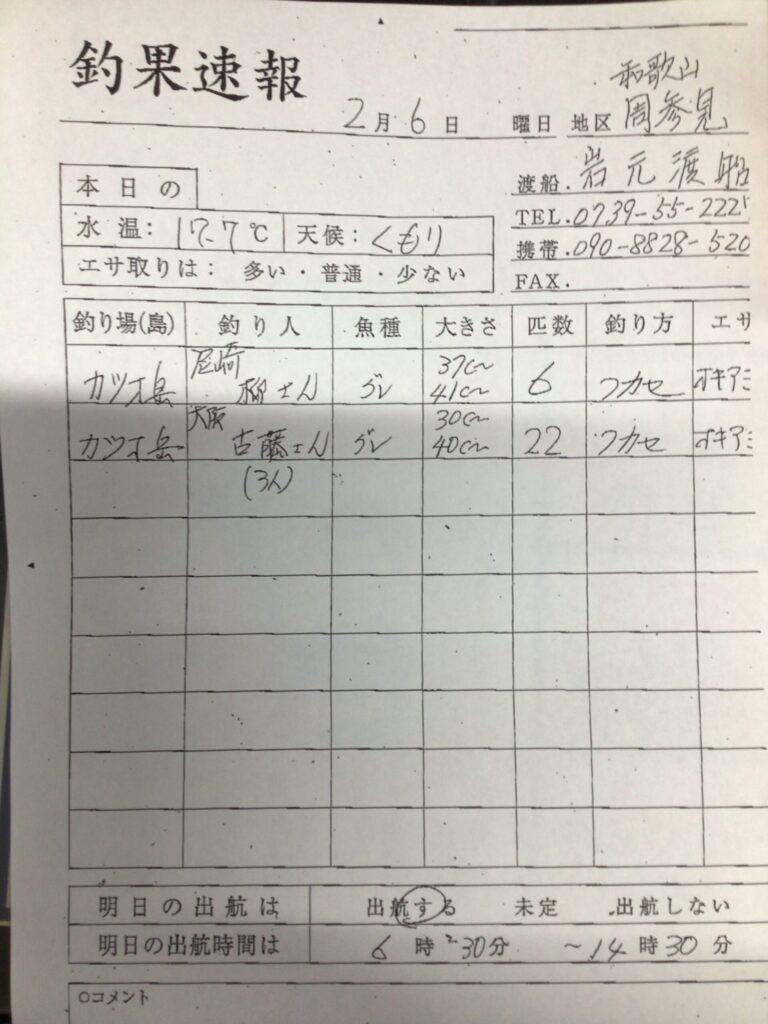 釣果速報
2月6日 曜日 地区 和歌山 周参見
渡船. 岩元渡船
TEL. 0739-55-222
携帯. 090-8828-520
FAX.
本日の
水温: 17.7℃ 天候: くもり
エサ取りは: 多い・普通・少ない
釣り場(島) 釣り人 魚種 大きさ 匹数 釣り方 エサ
カツオ島 尼崎 柳さん グレ 37㎝~41㎝ 6 フカセ オキアミ
カツオ島 大阪 古藤さん グレ 30㎝~40㎝ 22 フカセ オキアミ
(3人)
明日の出航は 出航する 未定 出航しない
明日の出航時間は 6時30分 ~14時30分
○コメント